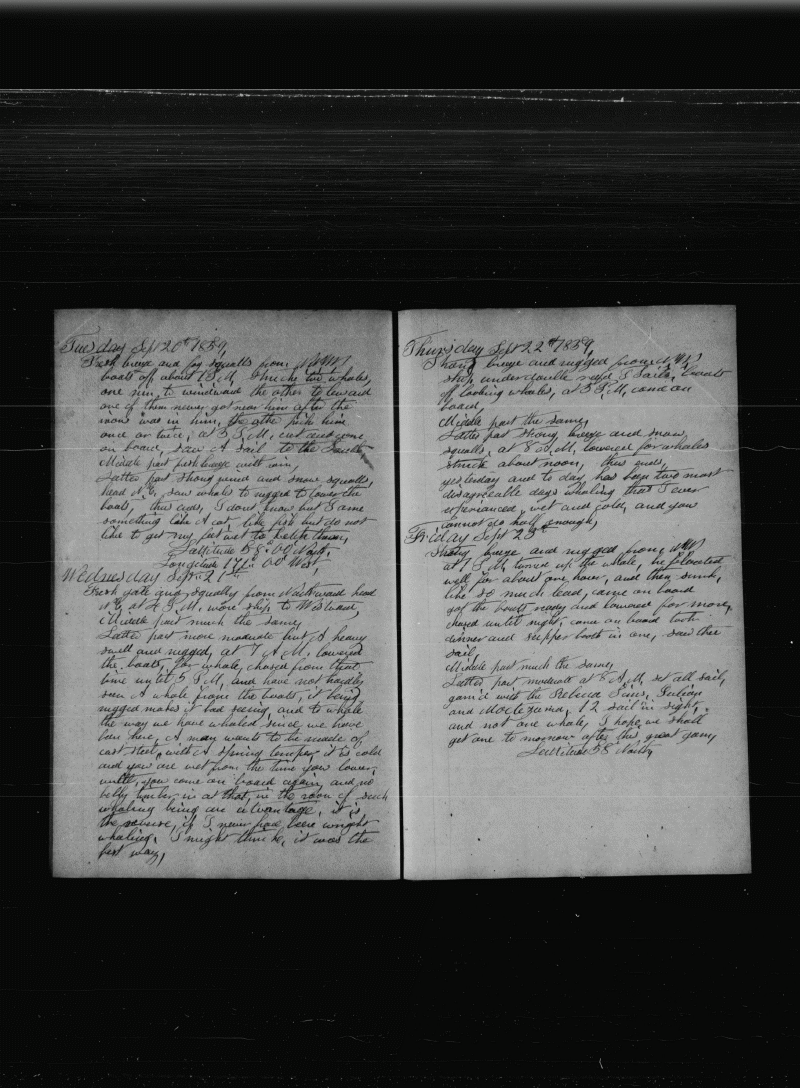 Tuesday Sept 20th 1859,
Fresh breeze and fog squalls from NNW
boats off about 1 P.M, struck two whales,
one run to windward the other to leeward
one of them never got near him after the
iron was in him, the other
once or twice, at 5 P.M, cut and come
on board, saw A sail to the South
Middle part fresh breeze with rain,
Latter part strong wind and snow squalls,
head N.E, saw whales to rugged to lower the
boats, thus ends, I dont know but I am
something like A cat, like fish but do not
like to get my feet wet to ketch them,
Lattitude 58° 00 North,
Longitude 00 West
Wednesday Sept 21st
Fresh gale and squally from Northward head
at 4 P.M. wore ship to Westward,
Middle part much the same,
Latter part more moderate but A heavy
swell and rugged, at 7 A.M. lowered
the boats, for whale, chased from that
time until 5 P.M, and have not hardly
seen A whale from the boats, it being
rugged makes it bad seeing, and to whale
the way we have whaled since we have
been here, A man wants to be made of
cast steel, with A spring temper it is cold
and you are wet from the time you lower,
untill you come on board again, and no
belly timber in at that, in the room of such
whaling being an advantage, it is
the reverse, if I never had been wright
whaling, I might think, it was the
best way,
Thursday Sept 22nd 1859,
Strong breeze and rugged from NNW
ship under double reefs, boats
off looking whales, at 5 P.M, come on
board,
Middle part the same,
Latter part strong breeze and snow
squalls, at 8 A.M, lowered for whales
struck about noon, thus ends,
yesterday and to day has been two most
disagreeable days whaling that I ever
experianced, wet and cold, and you
cannot do half enough,
Friday Sept 23d
Strong breeze and rugged from NNW
at 1 P.M, turned up the whale, he floated
well for about one hour, and then sunk,
like so much lead, came on board
got the boats ready and lowered for more,
chased until night, come on board took
dinner and supper both in one, saw three
sail,
Middle part much the same,
Latter part moderate at 8 A.M, set all sail,
gam'd with the Rebecca Sims,
and Moctezuma, 12 sail in sight,
and not one whale, I hope we shall
get one to morrow after this great gam,
Lattitude 58 North,